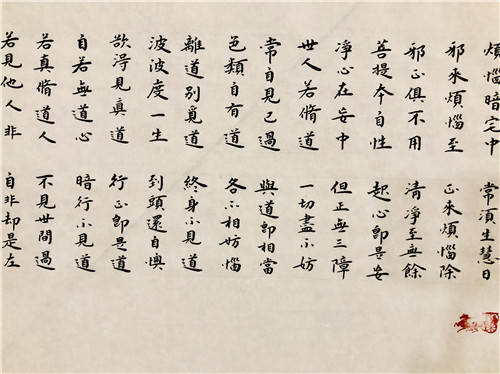 煩惱暗宅中 常須生慧日
邪來煩惱至 正來煩惱除
邪正俱不用 清淨至無餘
菩提本自性 起心即是妄
淨心在妄中 但正無三障
世人若脩道 一切盡不妨
常自見己過 與道即相當
色類自有道 各不相妨惱
離道別覓道 終身不見道
波波度一生 到頭還自懊
欲得見真道 行正即是道
自若無道心 暗行不見道
若真脩道人 不見世間過
若見他人非 自非却是左